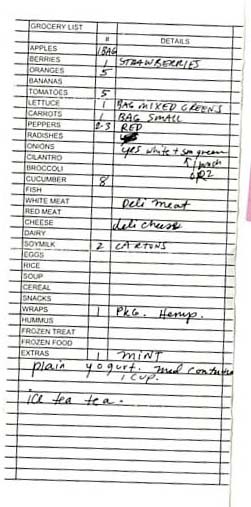 GROCERY LIST
# DETAILS
APPLES 1 BAG
BERRIES 1 STRAWBERRIES
ORANGES 5
BANANAS
TOMATOES 5
LETTUCE 1 BAG MIXED GREENS
CARROTS 1 BAG SMALL
PEPPERS 2-3 RED
RADISHES
ONIONS yes white + sm green
CILANTRO 1 bunch
BROCCOLI or 2
CUCUMBER 8
FISH
WHITE MEAT Deli meat
RED MEAT
CHEESE deli cheese
DAIRY
SOYMILK 2 CARTONS
EGGS
RICE
SOUP
CEREAL
SNACKS
WRAPS 1 PKG. Hemp.
HUMMUS
FROZEN TREAT
FROZEN FOOD
EXTRAS 1 MINT
plain yogurt. med
1 cup.
ice tea tea.